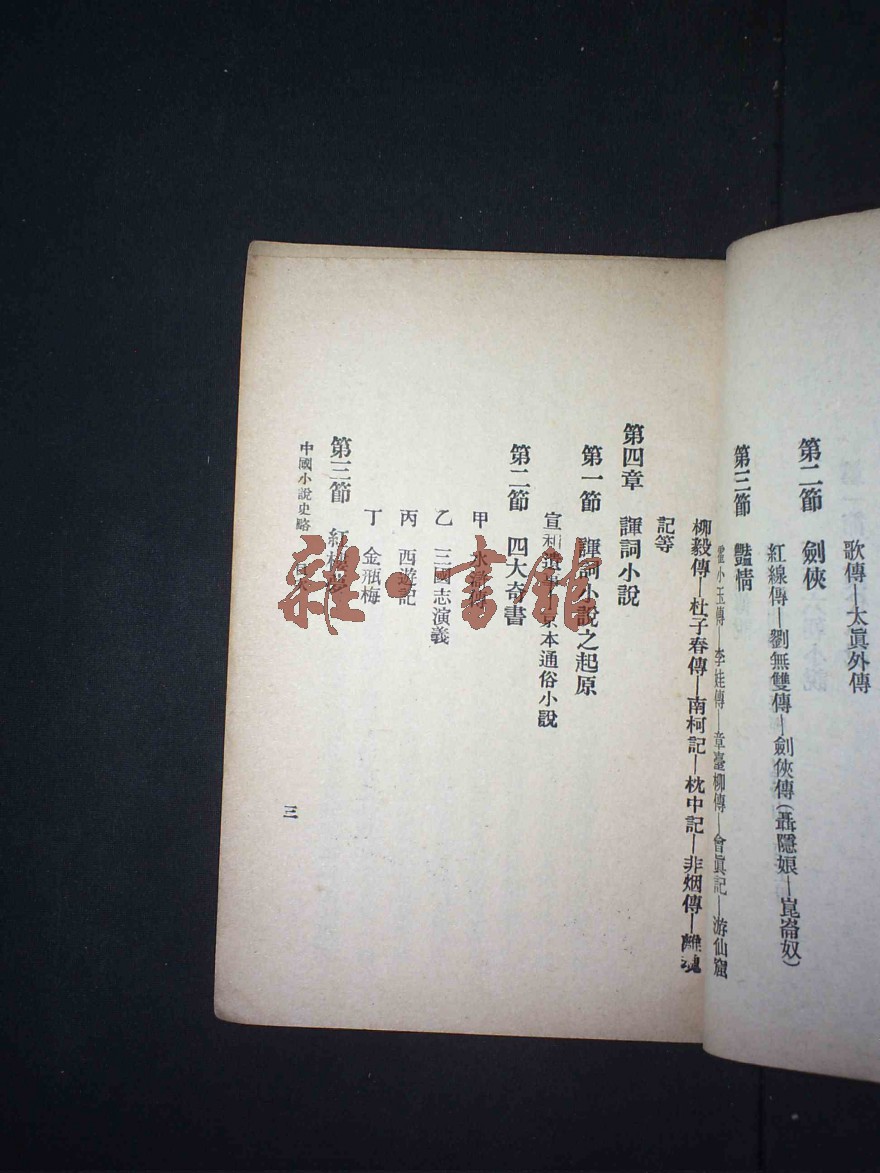 歌傳—太眞外傳
第二節　劍俠
紅線傳—劉無雙傳—劍俠傳(聶隱娘—崑崙奴)
第三節　豔情
霍小玉傳—李娃傳—章臺柳傳—會眞記—游仙窟
柳毅傳—杜子春傳—南柯記—枕中記—非烟傳—離魂
記等
第四章　諢詞小說
第一節　諢詞小說之起原
宣和遺事—京本通俗小說
第二節　四大奇書
甲　水滸傳
乙　三國志演義
丙　西遊記
丁　金瓶梅
第三節　紅樓夢
中國小說史略　目次
三
雜·書館